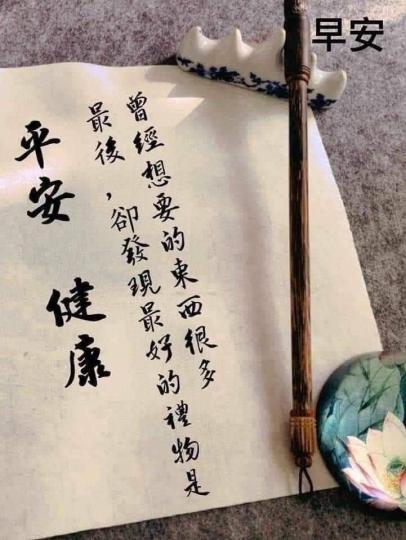 早安
曾經想要的東西很多
最後，卻發現最好的禮物是
平安
健康